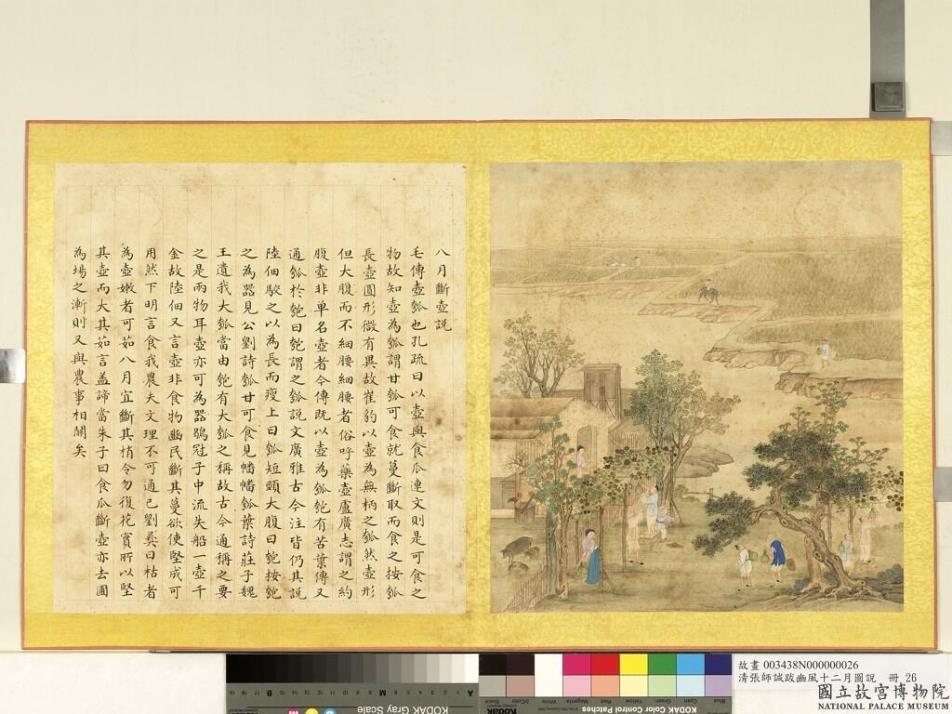 八月斷壺說
毛傳壺瓠也孔疏曰以壺與食瓜連文則是可食之
物故知壺為瓠謂甘瓠可食就蔓斷取而食之按瓠
長壺圓形微有異故崔豹以壺為無柄之瓠然壺形
但大腹而不細腰細腰者俗呼藥壺盧廣志謂之約
腹壺非單名壺者今傳既以壺為瓠匏有苦葉傳又
通瓠於匏曰匏謂之瓠說文廣雅古今注皆仍其說
陸佃駁之以為長而瘦上曰瓠短頸大腹曰匏按匏
之為器見公劉詩瓠甘可食見幡幡瓠葉詩莊子魏
王遺我大瓠當由匏有大瓠之稱故古今通稱之要
之是兩物耳壺亦可為器鶡冠子中流失船一壺千
金故陸佃又言壺非食物豳民斷其蔓欲使堅成可
用然下明言食我農夫文理不可通已劉彝曰枯者
為壺嫩者可茹八月宜斷其梢令勿復花實所以堅
其壺而大其茹言蓋諦當朱子曰食瓜斷壺亦去圃
為場之漸則又與農事相關矣
KODAK Gray Scale
KODAK Color Control Patches
故畫 003438N000000026
清張師誠跋豳風十二月圖說 冊 26
國立故宮博物院
NATIONAL PALACE MUSEUM